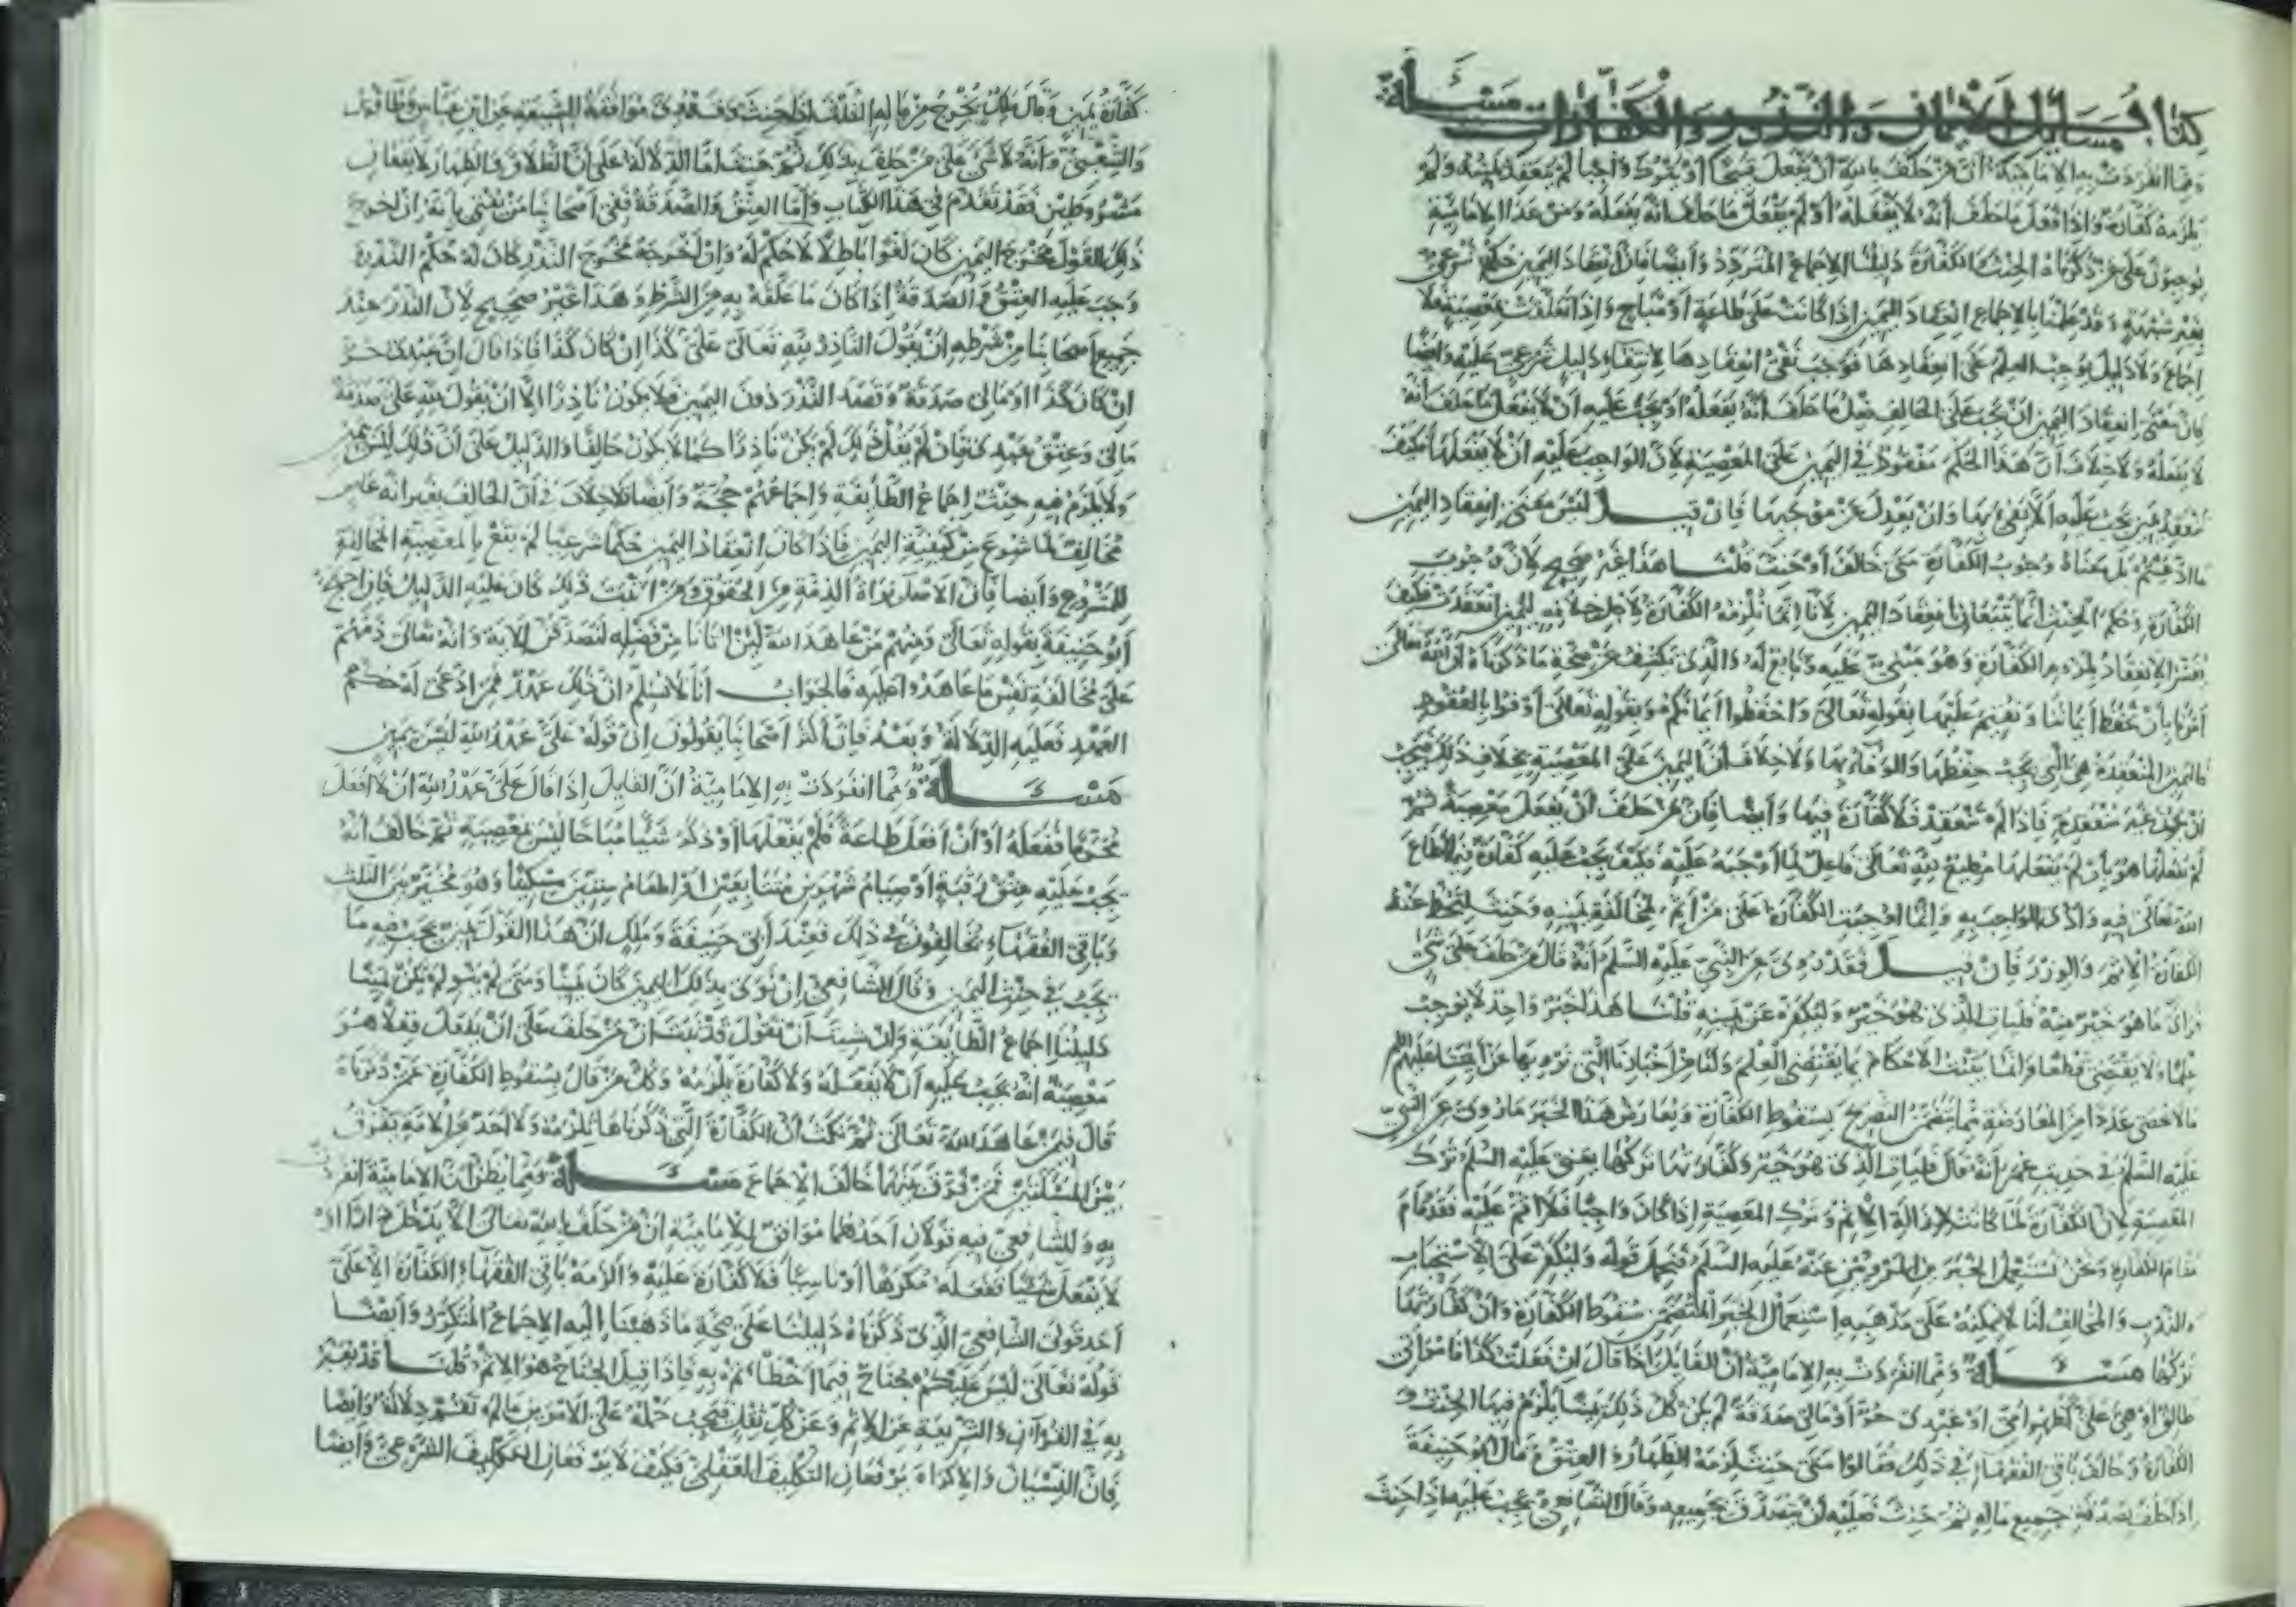 كتاب مسائل الأيمان والنذور والكفارات مسئلة
ومما انفردت به الامامية أن من حلف بالله أن يفعل قبيحا أو يترك واجبا لم تنعقد يمينه ولم
يلزمه كفارة واذا فعل ما حلف أنه لا يفعله أو لم يفعل ما حلف أنه يفعله ومن عدا الإمامية
يوجبون على من ذكرناه الحنث والكفارة دليلنا الاجماع المتردد وأيضا فان انعقاد اليمين حكم شرعي
بغير شبهة وقد علمنا بالاجماع انعقاد اليمين إذا كانت على طاعة أو مباح واذا تعلقت بمعصية فلا
اجماع ولا دليل يوجب العلم على انعقادها فوجب نفي انعقادها لانتفاء دليل شرعي عليه وأيضا
فان معنى انعقاد اليمين ان يجب على الحالف فعل ما حلف أنه يفعله أو يجب عليه ان لا يفعل ما حلف أنه
لا يفعله ولا خلاف أن هذا الحكم مفقود في اليمين على المعصية لأن الواجب عليه أن لا يفعلها فكيف
تنعقد يمين يجب عليه ألا يفي بها وان يعدل عن موجبها فان قيل ليس معنى انعقاد اليمين
ما ادعيتم بل معناه وجوب الكفارة متى خالف أو حنث قلنا هذا غير صحيح لأن وجوب
الكفارة وحكم الحنث انما يتبعان انعقاد اليمين لأنا انما نلزمه الكفارة لأجل خلافه ليمين انعقدت فكيف
يفسر الانعقاد بلزوم الكفارة وهو مبني عليه وتابع له والذي يكشف عن صحة ما ذكرناه ان الله تعالى
أمرنا بأن نحفظ أيماننا ونقيم عليها بقوله تعالى واحفظوا أيمانكم وبقوله تعالى أوفوا بالعقود
فاليمين المنعقدة هي التي يجب حفظها والوفاء بها ولا خلاف أن اليمين على المعصية بخلاف ذلك فيجب
ان تكون غير منعقدة فاذا لم تنعقد فلا كفارة فيها وأيضا فان من حلف أن يفعل معصية ثم
لم يفعلها هو بأن لم يفعلها مطيع لله تعالى فاعل لما أوجبه عليه فكيف يجب عليه كفارة فيما أطاع
الله تعالى فيه وأدى الواجب به وانما اوجبت الكفارة على من أثم لمخالفة يمينه وحنث لتحط عنه
الكفارة الإثم والوزر فان قيل فقد روي عن النبي عليه السلم أنه قال من حلف على شي
فرأى ما هو خير منه فليأت الذي هو خير وليكفر عن يمينه قلنا هذا خبر واحد لا يوجب
علما ولا يقتضي قطعا وانما يثبت الأحكام بما يقتضي العلم ولنا من أخبارنا التي نرويها عن أئمتنا عليهم السلم
ما لا يحصى عددا من المعارضة مما يتضمن التصريح بسقوط الكفارة ويعارض هذا الخبر ما روي عن النبي
عليه السلم في حديث عمر أنه قال فليأت الذي هو خير وكفارتها تركها يعني عليه السلم ترك
المعصية لأن الكفارة لما كانت لازالة الاثم وترك المعصية إذا كان واجبا فلا اثم عليه فقد قام
مقام الكفارة ونحن نستعمل الخبرين المرويين عنه عليه السلم فنحمل قوله وليكفر على الاستحباب
والندب والمخالف لنا لا يمكنه على مذهبه استعمال الخبر المتضمن سقوط الكفارة وان كفارتها
تركها مسئلة ومما انفردت به الإمامية أن القايل اذا قال ان فعلت كذا فامرأتي
طالق أو هي علي كظهر امي أو عبدي حر أو مالي صدقة لم يكن كل ذلك يمينا يلزم فيها الحنث و
الكفارة وخالف باقي الفقهاء في ذلك فقالوا متى حنث لزمه الظهار والعتق وقال أبو حنيفة
إذا حلف بصدقة جميع ماله ثم حنث فعليه أن يتصدق بجميعه وقال الشافعي يجب عليه إذا حنث
كفارة يمين وقال ملك يخرج من ماله الثلث اذا حنث وقد روي موافقة الشيعة عن ابن عباس وطاوس
والشعبي وأنه لا شي على من حلف بذلك ثم حنث أما الدلالة على أن الطلاق والظهار لا يقعان
مشروطين فقد تقدم في هذا الكتاب وأما العتق والصدقة ففي أصحابنا من يفتي بأنه ان اخرج
ذلك القول مخرج اليمين كان لغوا باطلا لا حكم له وان أخرجه مخرج النذر كان له حكم النذر و
وجب عليه العتق والصدقة إذا كان ما علقه به من الشرط وهذا غير صحيح لأن النذر عند
جميع أصحابنا من شرطه أن يقول الناذر لله تعالى علي كذا ان كان كذا فاذا قال ان عبدي حر
ان كان كذا او مالي صدقة وقصد النذر دون اليمين فلا يكون ناذرا الا ان يقول لله علي صدقة
مالي وعتق عبدي فان لم يقل ذلك لم يكن ناذرا كما لا يكون حالفا والدليل على أن ذلك ليس بيمين
ولا يلزم فيه حنث اجماع الطايفة واجماعهم حجة وأيضا فلا خلاف في أن الحالف بغير الله عاص
مخالف لما شرع من كيفية اليمين فاذا كان انعقاد اليمين حكما شرعيا لم يقع بالمعصية المخالفة
للمشروع وأيضا فان الأصل براءة الذمة من الحقوق ومن اثبت ذلك كان عليه الدليل فان احتج
أبو حنيفة بقوله تعالى ومنهم من عاهد الله لئن آتانا من فضله لنصدقن الاية وانه تعالى ذمهم
على مخالفة نفس ما عاهدوا عليه فالجواب أنا لا نسلم ان ذلك عهد فمن ادعى له حكم
العهد فعليه الدلالة وبعد فان أكثر أصحابنا يقولون ان قوله علي عهد الله ليس بيمين
مسئلة ومما انفردت به الإمامية أن القايل إذا قال علي عهد الله ان لا أفعل
محرما ففعله أو أن أفعل طاعة فلم يفعلها أو ذكر شيئا مباحا ليس بمعصية ثم خالف أنه
يجب عليه عتق رقبة أو صيام شهرين متتابعين او إطعام ستين مسكينا وهو مخير بين الثلث
وباقي الفقهاء يخالفون في ذلك فعند أبي حنيفة وملك ان هذا القول يمين يجب فيه ما
يجب في حنث اليمين وقال الشافعي إن نوى بذلك اليمين كان يمينا ومتى لم ينو لم يكن يمينا
دليلنا اجماع الطايفة وان شيت أن تقول قد ثبت ان من حلف على ان يفعل فعلا هو
معصية انه يجب عليه أن لا يفعله ولا كفارة يلزمه وكل من قال بسقوط الكفارة عمن ذكرناه
قال فيمن عاهد الله تعالى ثم نكث أن الكفارة التي ذكرناها تلزمه ولا أحد من الأمة يفرق
بين المسئلتين فمن فرق بينهما خالف الاجماع مسئلة ومما يظن أن الإمامية انفردت
به وللشافعي فيه قولان أحدهما موافق للإمامية أن من حلف بالله تعالى ألا يدخل دارا او
لا يفعل شيئا ففعله مكرها أو ناسيا فلا كفارة عليه وألزمه باقي الفقهاء الكفارة الا على
أحد قولي الشافعي الذي ذكرناه دليلنا على صحة ما ذهبنا إليه الاجماع المتكرر وأيضا
قوله تعالى ليس عليكم جناح فيما أخطأتم به فاذا قيل الجناح هو الاثم قلنا قد يعبر
به في القرآن والشريعة عن الإثم وعن كل ثقل فيجب حمله على الأمرين ما لم تقم دلالة وأيضا
فان النسيان والاكراه يرفعان التكليف العقلي فكيف لا يرفعان التكليف الشرعي وأيضا